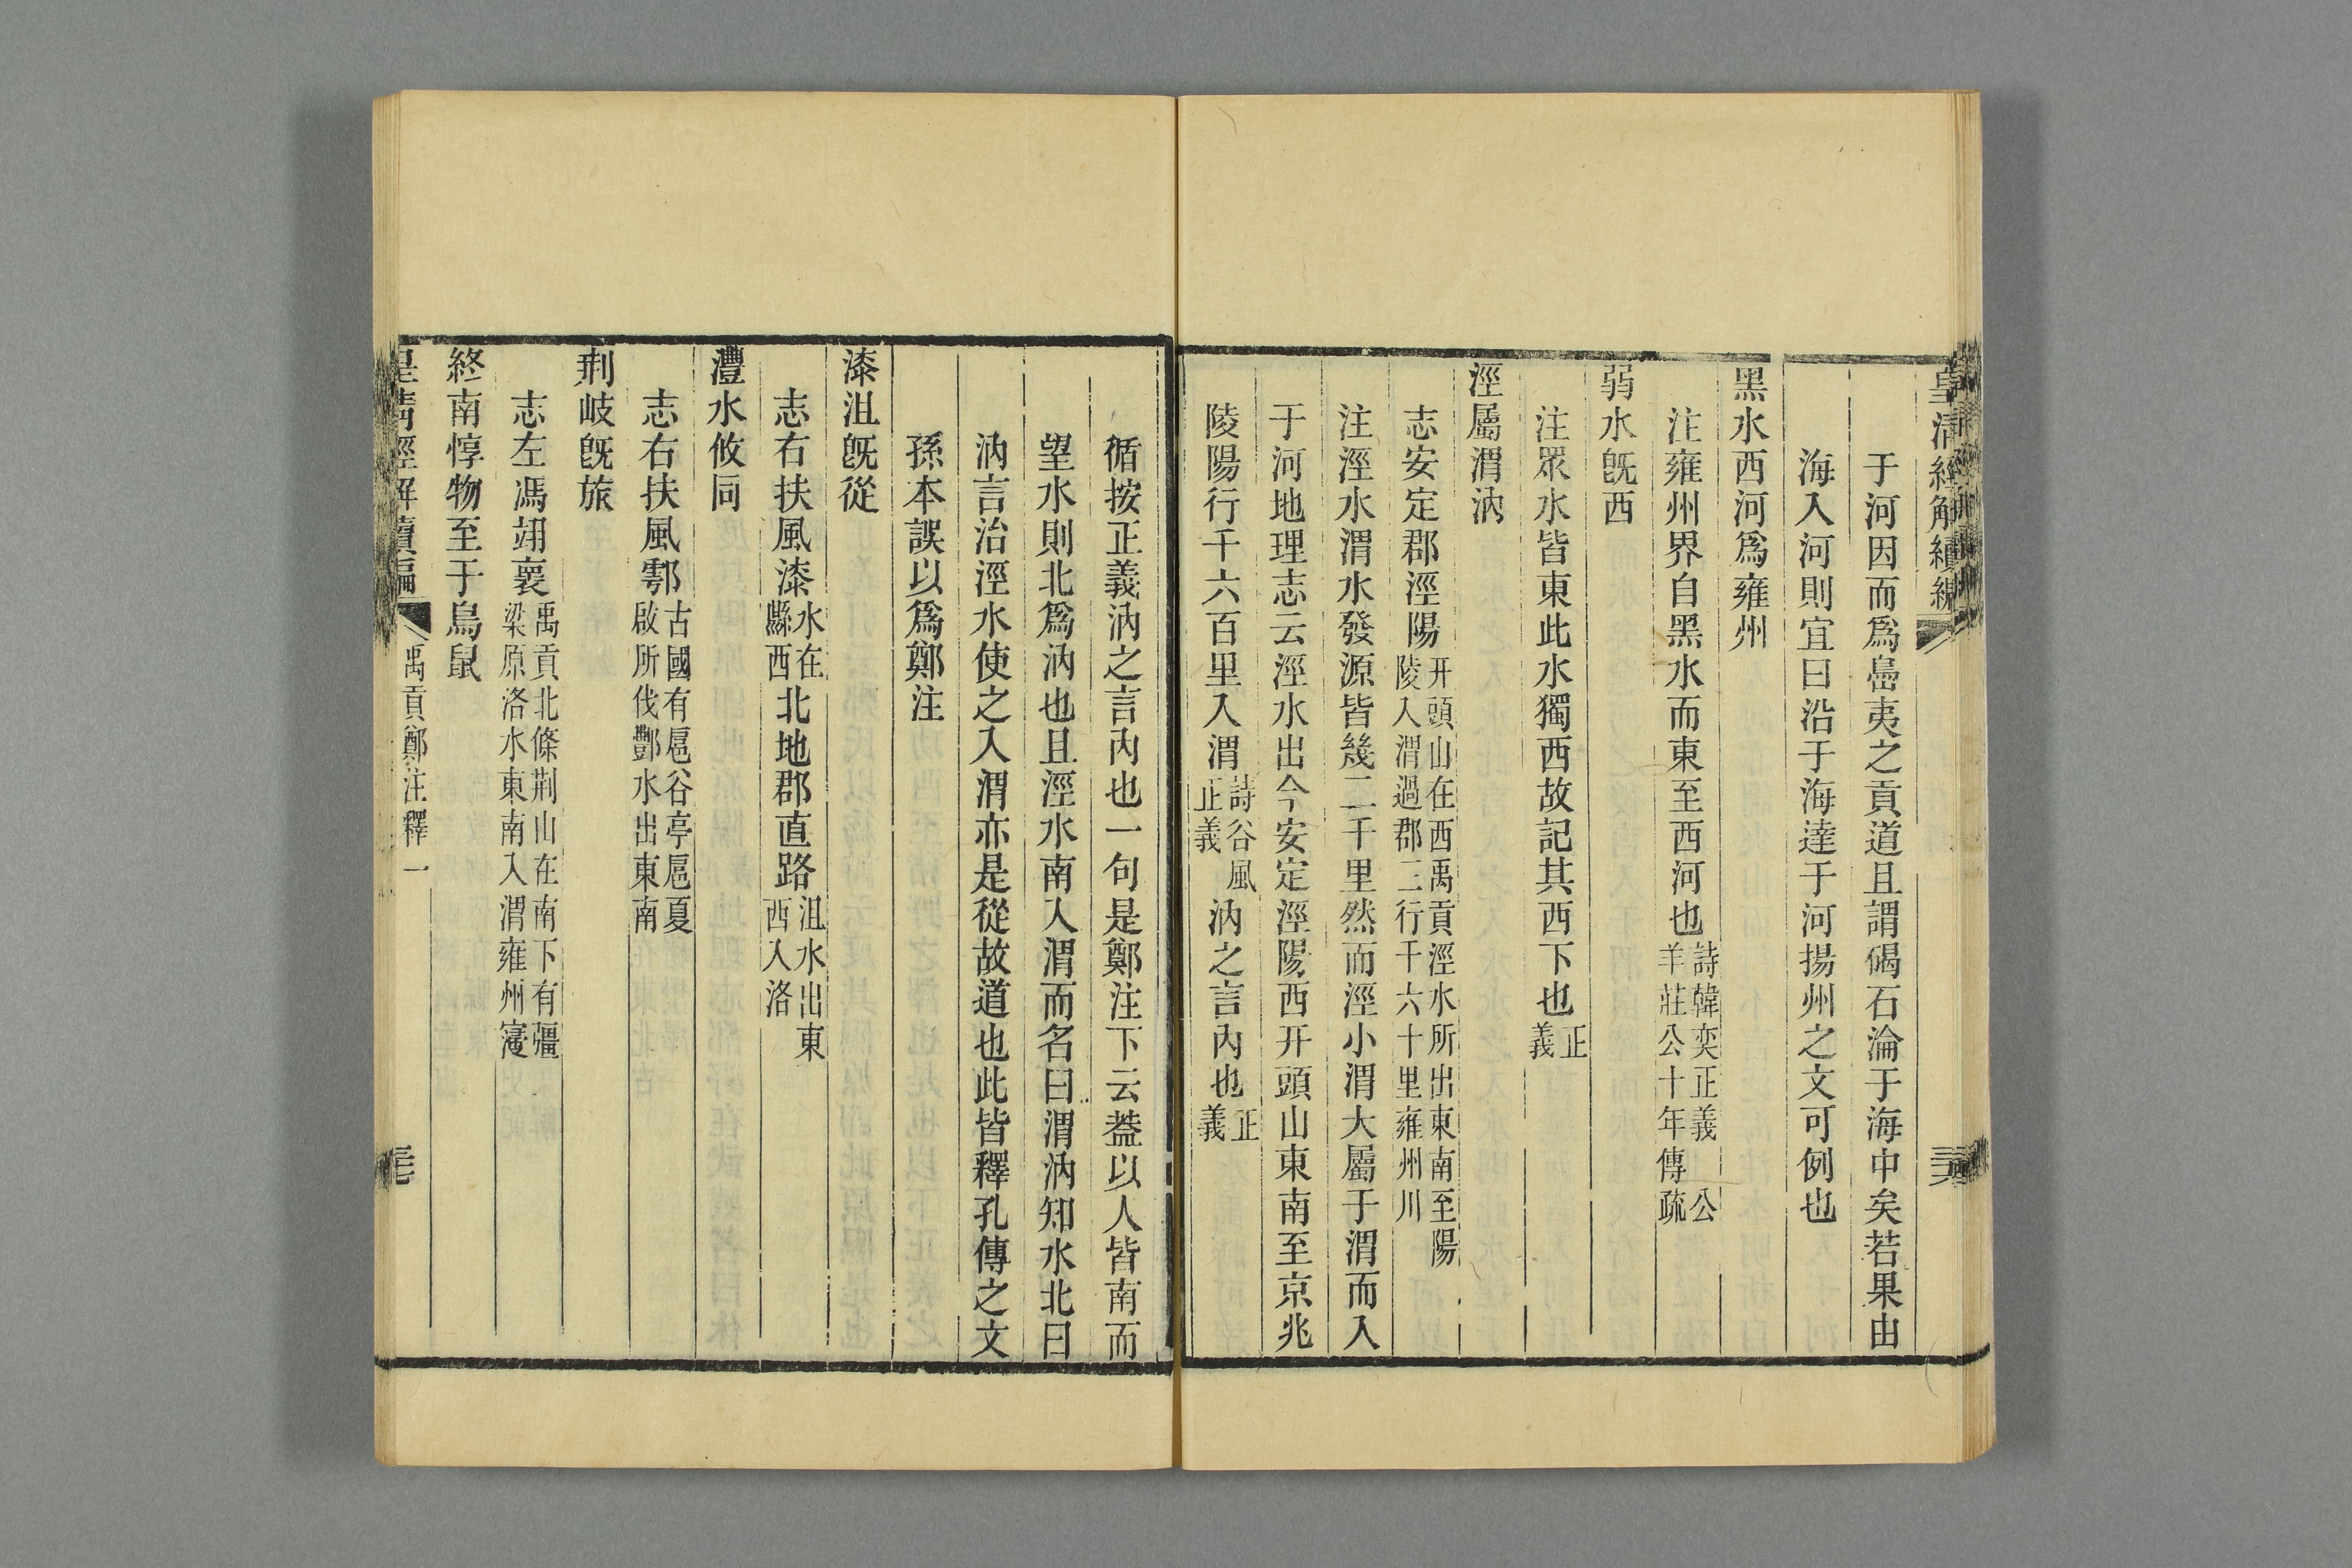 皇清經解續編
于河因而爲嵒夷之貢道且謂碣石淪于海中矣若果由
海入河則宜曰沿于海達于河揚州之文可例也
黑水西河爲雍州
注雍州界自黑水而東至西河也詩韓奕正義 公羊莊公十年傳疏
弱水旣西
注眾水皆東此水獨西故記其西下也正義
涇屬渭汭
志安定郡涇陽幵頭山在西禹貢涇水所出東南至陽陵入渭過郡三行千六十里雍州川
注涇水渭水發源皆幾二千里然而涇小渭大屬于渭而入
于河地理志云涇水出今安定涇陽西幵頭山東南至京兆
陵陽行千六百里入渭詩谷風正義汭之言內也正義
循按正義汭之言內也一句是鄭注下云葢以人皆南而
望水則北爲汭也且涇水南入渭而名曰渭汭知水北曰
汭言治涇水使之入渭亦是從故道也此皆釋孔傳之文
孫本誤以爲鄭注
漆沮旣從
志右扶風漆水在縣西北地郡直路沮水出東西入洛
灃水攸同
志右扶風鄠古國有扈谷亭扈夏啟所伐酆水出東南
荆岐旣旅
志左馮翊褱禹貢北條荆山在南下有彊梁原洛水東南入渭雍州寖
終南惇物至于鳥鼠
皇清經解續編
禹貢鄭注釋一